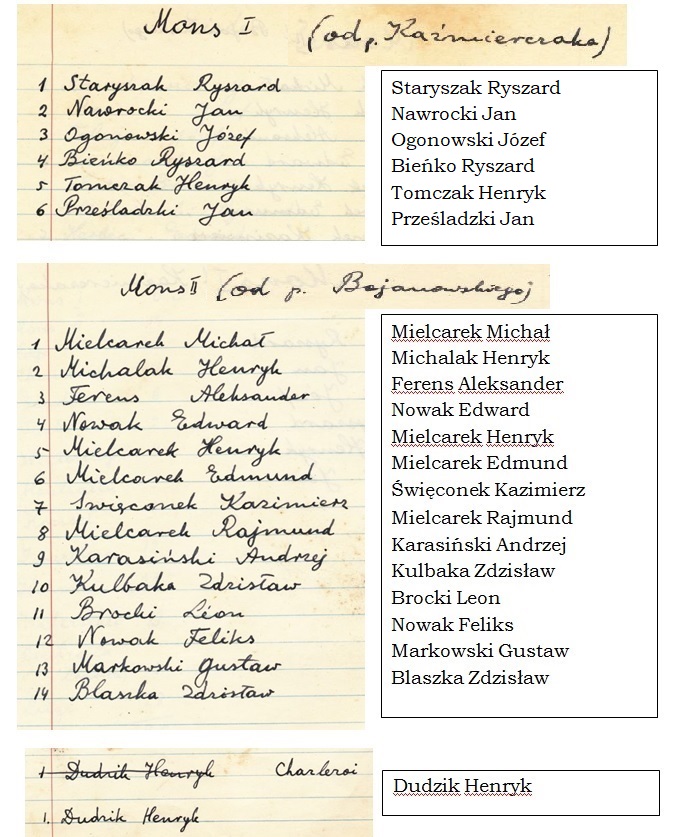 Mons I (od p. Kaźmierczaka)
1 Staryszak Ryszard
2 Nawrocki Jan
3 Ogonowski Józef
4 Bieńko Ryszard
5 Tomczak Henryk
6 Prześladzki Jan
Staryszak Ryszard
Nawrocki Jan
Ogonowski Józef
Bieńko Ryszard
Tomczak Henryk
Prześladzki Jan
Mons II (od p. Bojanowskiego)
1 Mielcarek Michał
2 Michalak Henryk
3 Ferens Aleksander
4 Nowak Edward
5 Mielcarek Henryk
6 Mielcarek Edmund
7 Swięconek Kazimierz
8 Mielcarek Rajmund
9 Karasiński Andrzej
10 Kulbaka Zdzisław
11 Brocki Léon
12 Nowak Feliks
13 Markowski Gustaw
14 Blaszka Zdzisław
Mielcarek Michał
Michalak Henryk
Ferens Aleksander
Nowak Edward
Mielcarek Henryk
Mielcarek Edmund
Święconek Kazimierz
Mielcarek Rajmund
Karasiński Andrzej
Kulbaka Zdzisław
Brocki Leon
Nowak Feliks
Markowski Gustaw
Blaszka Zdzisław
1 Dudzik Henryk Charleroi
1. Dudzik Henryk
Dudzik Henryk